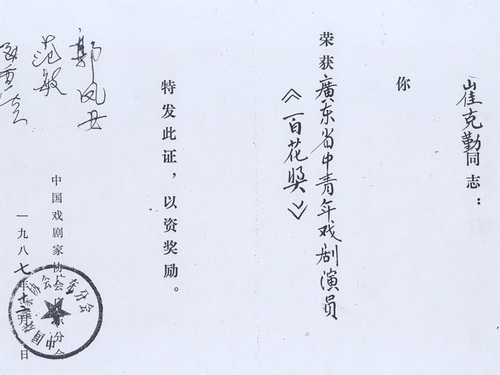 崔克勤同志：
你
荣获廣东省中青年戏剧演员
《百花奖》
特发此证，以资奖励。
郭凤女
范敏
中国戏剧家协会广东分会
一九八七年十二月 日